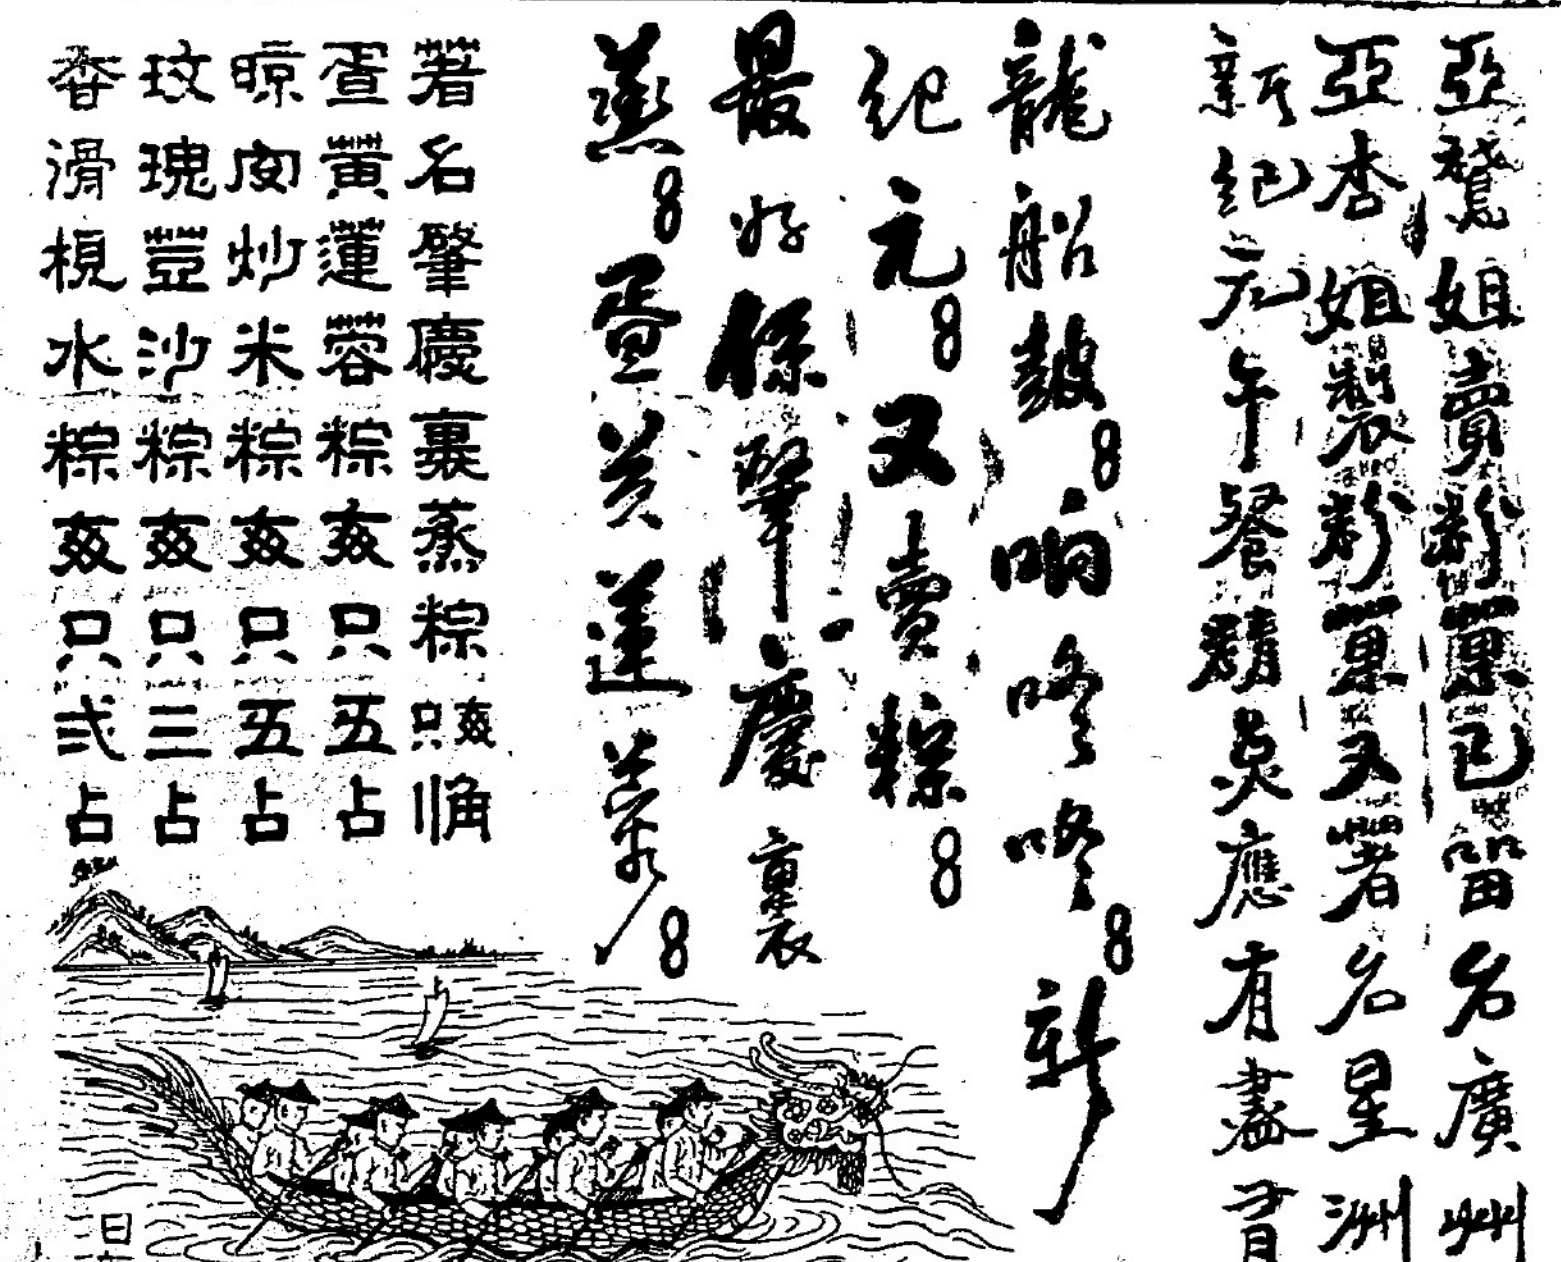 亞姐賣粉菓已留名廣州
亞杏姐製粉菓又著名星洲
新紀元午餐精美應有盡有
龍船鼓8响咚咚8新
紀元8又賣粽8
最好係肇慶裹
蒸8蛋黃蓮蓉8
著名肇慶裹蒸粽每只角
蛋黃蓮蓉粽每只五占
晾肉炒米粽每只五占
玫瑰荳沙粽每只三占
香滑梘水粽每只弍占
日